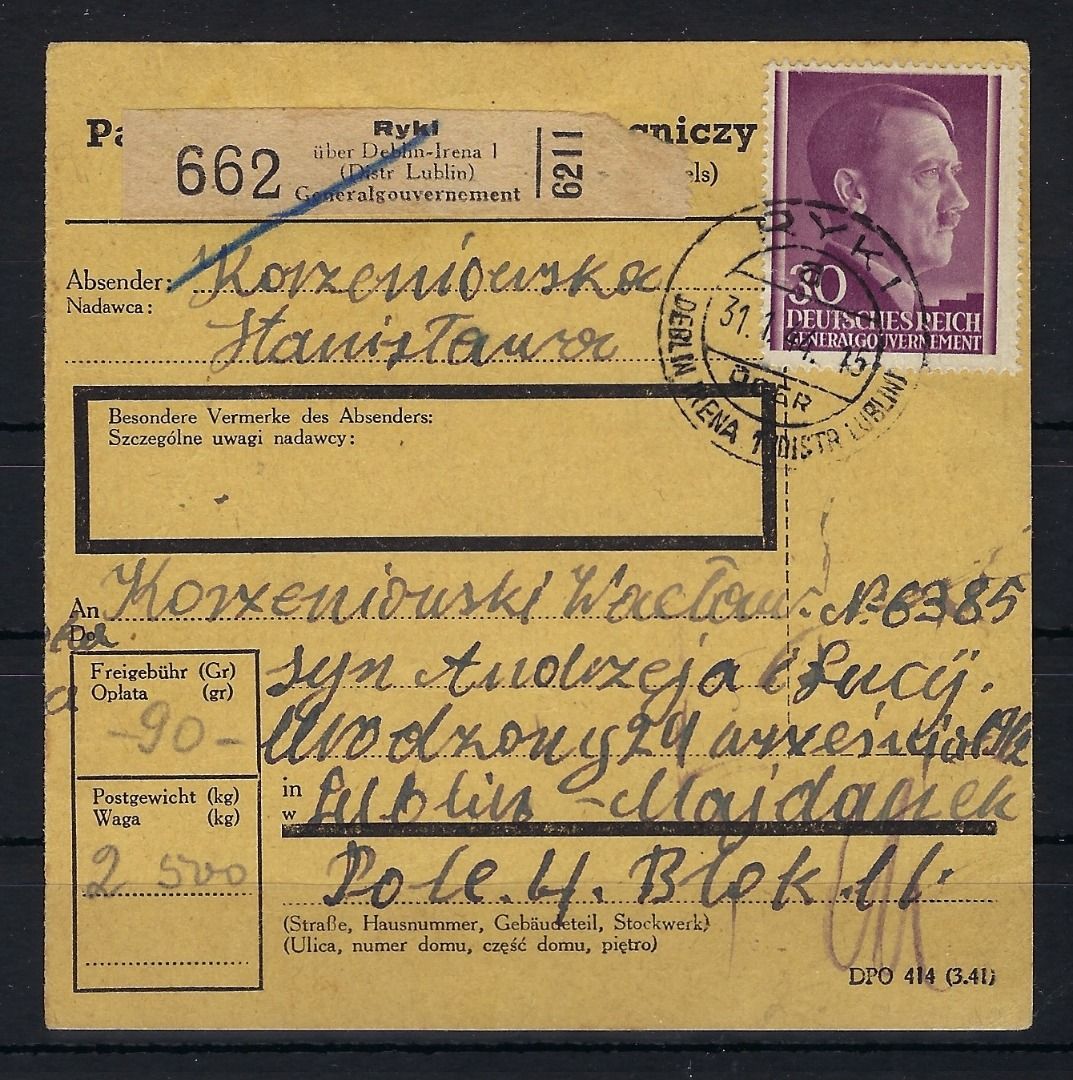 Pa
gniczy
els)
662
Ryki
über Deblin-Irena 1
(Distr Lublin)
Generalgouvernement
6211
30
DEUTSCHES REICH
GENERALGOUVERNEMENT
RYKI
a
31.1.44. 15
ÜBER
DEBLIN IRENA 1 (DISTR LUBLIN)
Absender: Korzeniowska
Nadawca:
Stanisława
Besondere Vermerke des Absenders:
Szczególne uwagi nadawcy:
An Korzeniowski Wacław. № 6385
Do
syn Andrzeja i Łucyi.
Urodzony 24 września 1912
in Lublin - Majdanek
w
Pole. 4. Blok. 11.
(Straße, Hausnummer, Gebäudeteil, Stockwerk)
(Ulica, numer domu, część domu, piętro)
Freigebühr (Gr)
Opłata (gr)
-90-
Postgewicht (kg)
Waga (kg)
2 500
DPO 414 (3.41)